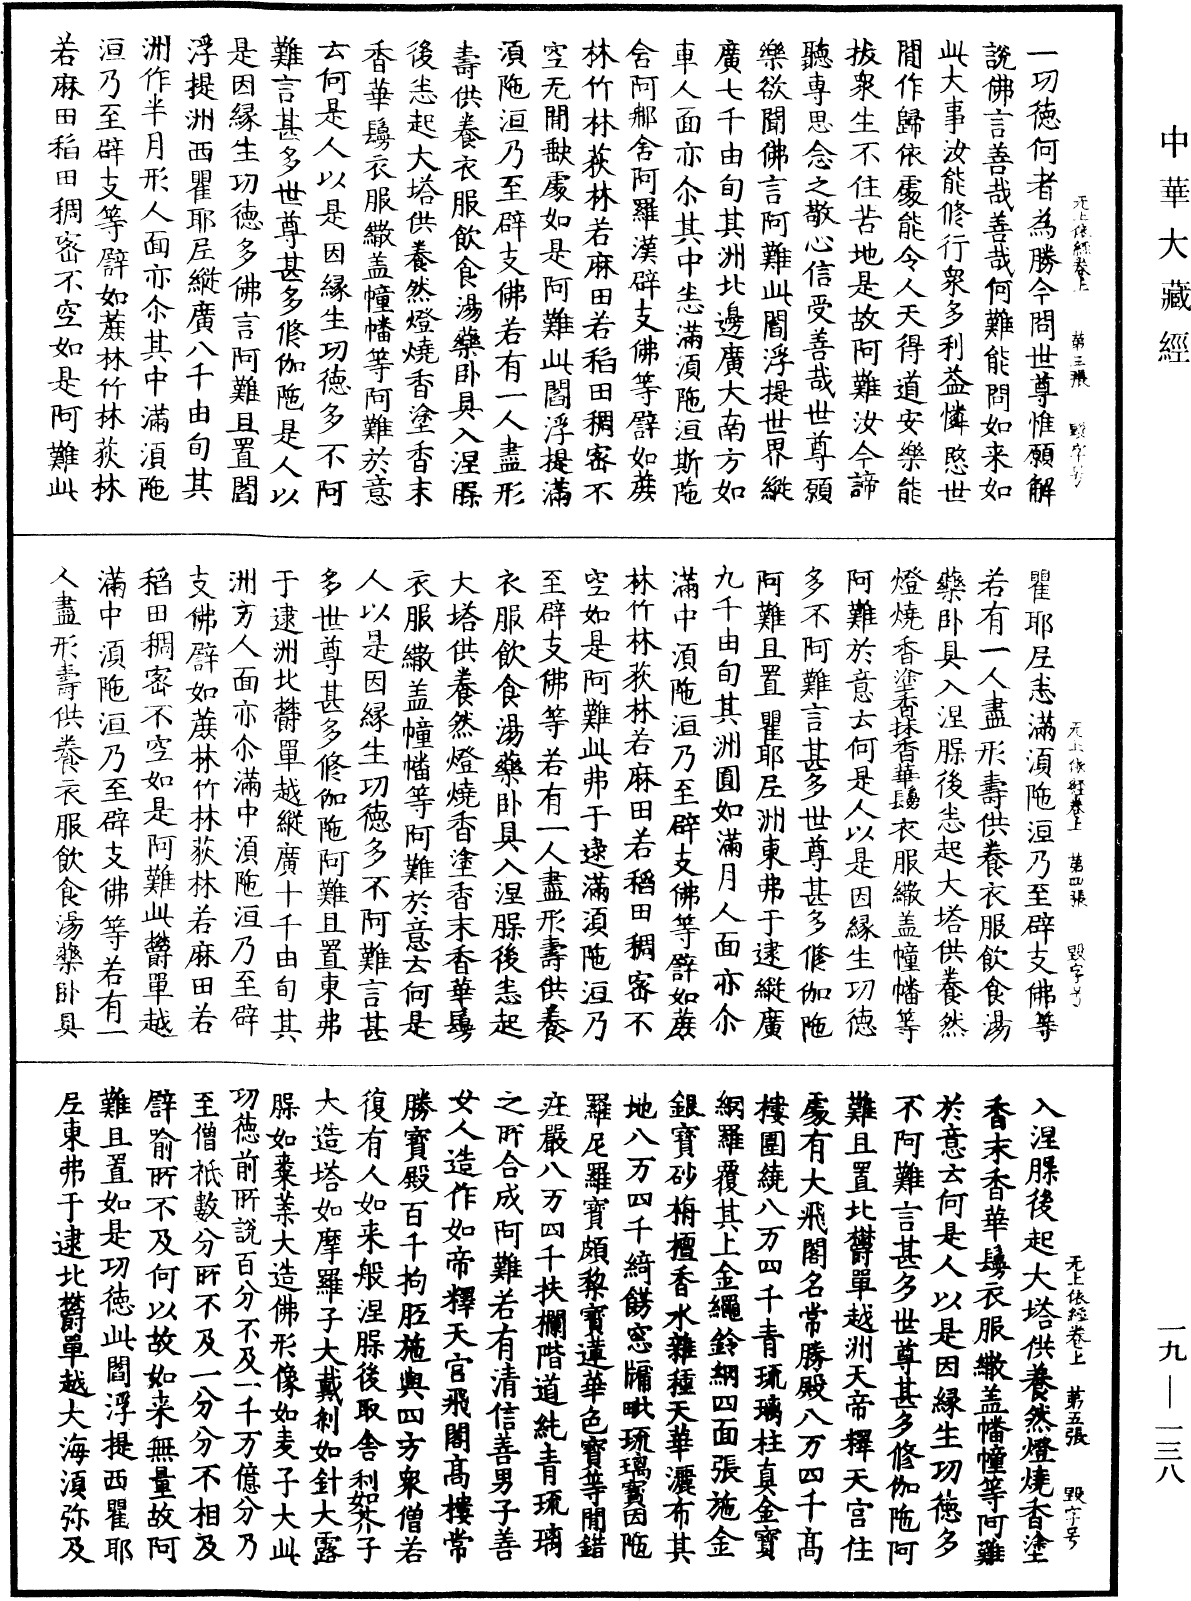 中華大藏經
一功德何者為勝今問世尊惟願解
說佛言善哉善哉何難能問如来如
此大事汝能修行衆多利益憐愍世
閒作歸依處能令人天得道安樂能
拔衆生不住苦地是故阿難汝今諦
聽專思念之敬心信受善哉世尊願
樂欲聞佛言阿難此閻浮提世界縱
廣七千由旬其洲北邊廣大南方如
車人面亦尒其中悉滿湏陁洹斯陁
含阿鄉含阿羅漢辟支佛等譬如蔗
林竹林荻林若麻田若稻田稠密不
空无閒𭫧處如是阿難此閻浮提滿
湏陁洹乃至辟支佛若有一人盡形
壽供養衣服飲食湯藥卧具入涅脲
後悉起大塔供養然燈燒香塗香末
香華鬘衣服繖盖幢幡等阿難於意
云何是人以是因縁生功德多不阿
難言甚多世尊甚多修伽陁是人以
是因縁生功德多佛言阿難且置閻
浮提洲西瞿耶㞐縱廣八千由旬其
洲作半月形人面亦尒其中滿湏陁
洹乃至辟支等譬如蔗林竹林荻林
若麻田稻田稠密不空如是阿難此
无上依經卷上 第三張 毁字号
瞿耶㞐悉滿湏陁洹乃至辟支佛等
若有一人盡形壽供養衣服飲食湯
藥卧具入涅脲後悉起大塔供養然
燈燒香塗香抹香華鬘衣服繖盖幢幡等
阿難於意云何是人以是因縁生功德
多不阿難言甚多世尊甚多修伽陁
阿難且置瞿耶㞐洲東弗于逮縱廣
九千由旬其洲圓如滿月人面亦尒
滿中湏陁洹乃至辟支佛等譬如蔗
林竹林荻林若麻田若稻田稠密不
空如是阿難此弗于逮滿湏陁洹乃
至辟支佛等若有一人盡形壽供養
衣服飲食湯藥卧具入涅脲後悉起
大塔供養然燈燒香塗香末香華鬘
衣服繖盖幢幡等阿難於意云何是
人以是因縁生功德多不阿難言甚
多世尊甚多修伽陁阿難且置東弗
于逮洲北欝單越縱廣十千由旬其
洲方人面亦尒滿中湏陁洹乃至辟
支佛譬如蔗林竹林荻林若麻田若
稻田稠密不空如是阿難此欝單越
滿中湏陁洹乃至辟支佛等若有一
人盡形壽供養衣服飲食湯藥卧具
无上依經卷上 第四張 毁字号
入涅脲後起大塔供養然燈燒香塗
香末香華鬘衣服繖盖幡幢等阿難
於意云何是人以是因縁生功德多
不阿難言甚多世尊甚多修伽陁阿
難且置北欝單越洲天帝釋天宫住
處有大飛閣名常勝殿八万四千髙
樓圍繞八万四千青琉璃柱真金寶
網羅覆其上金繩鈴網四面張施金
銀寶砂栴檀香水雜種天華灑布其
地八万四千綺飾窓牖毗琉璃寶因陁
羅尼羅寶頗黎寶蓮華色寶等閒錯
㽵嚴八万四千扶欄階道純青琉璃
之所合成阿難若有清信善男子善
女人造作如帝釋天宫飛閣髙樓常
勝寶殿百千拘胝施與四方衆僧若
復有人如来般涅脲後取舍利如芥子
大造塔如摩羅子大戴刹如針大露
脲如棗葉大造佛形像如麦子大此
功德前所說百分不及一千万億分乃
至僧祇數分所不及一分分不相及
譬喻所不及何以故如来無量故阿
難且置如是功德此閻浮提西瞿耶
㞐東弗于逮北欝單越大海湏弥及
无上依經卷上 第五張 毁字号
一九—一三八